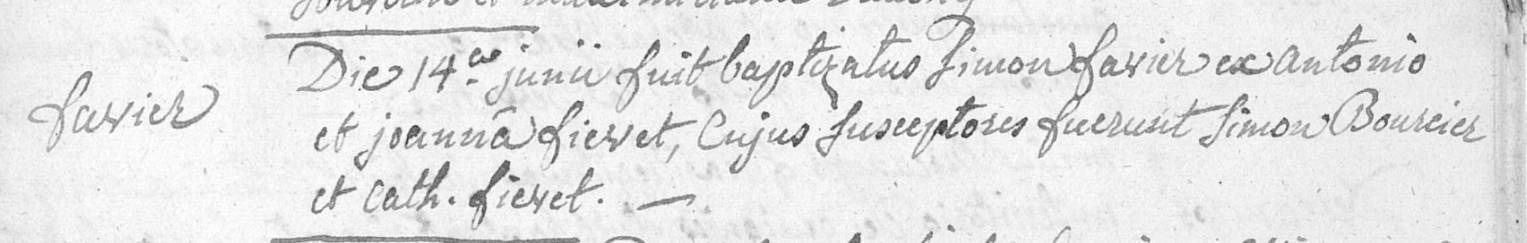 Die 14.a junii fuit baptizatus Simon favier ex antonio
favier
et joannâ fievet, Cujus Susceptores fuerunt Simon Bourcier
et Cath. fievet. —